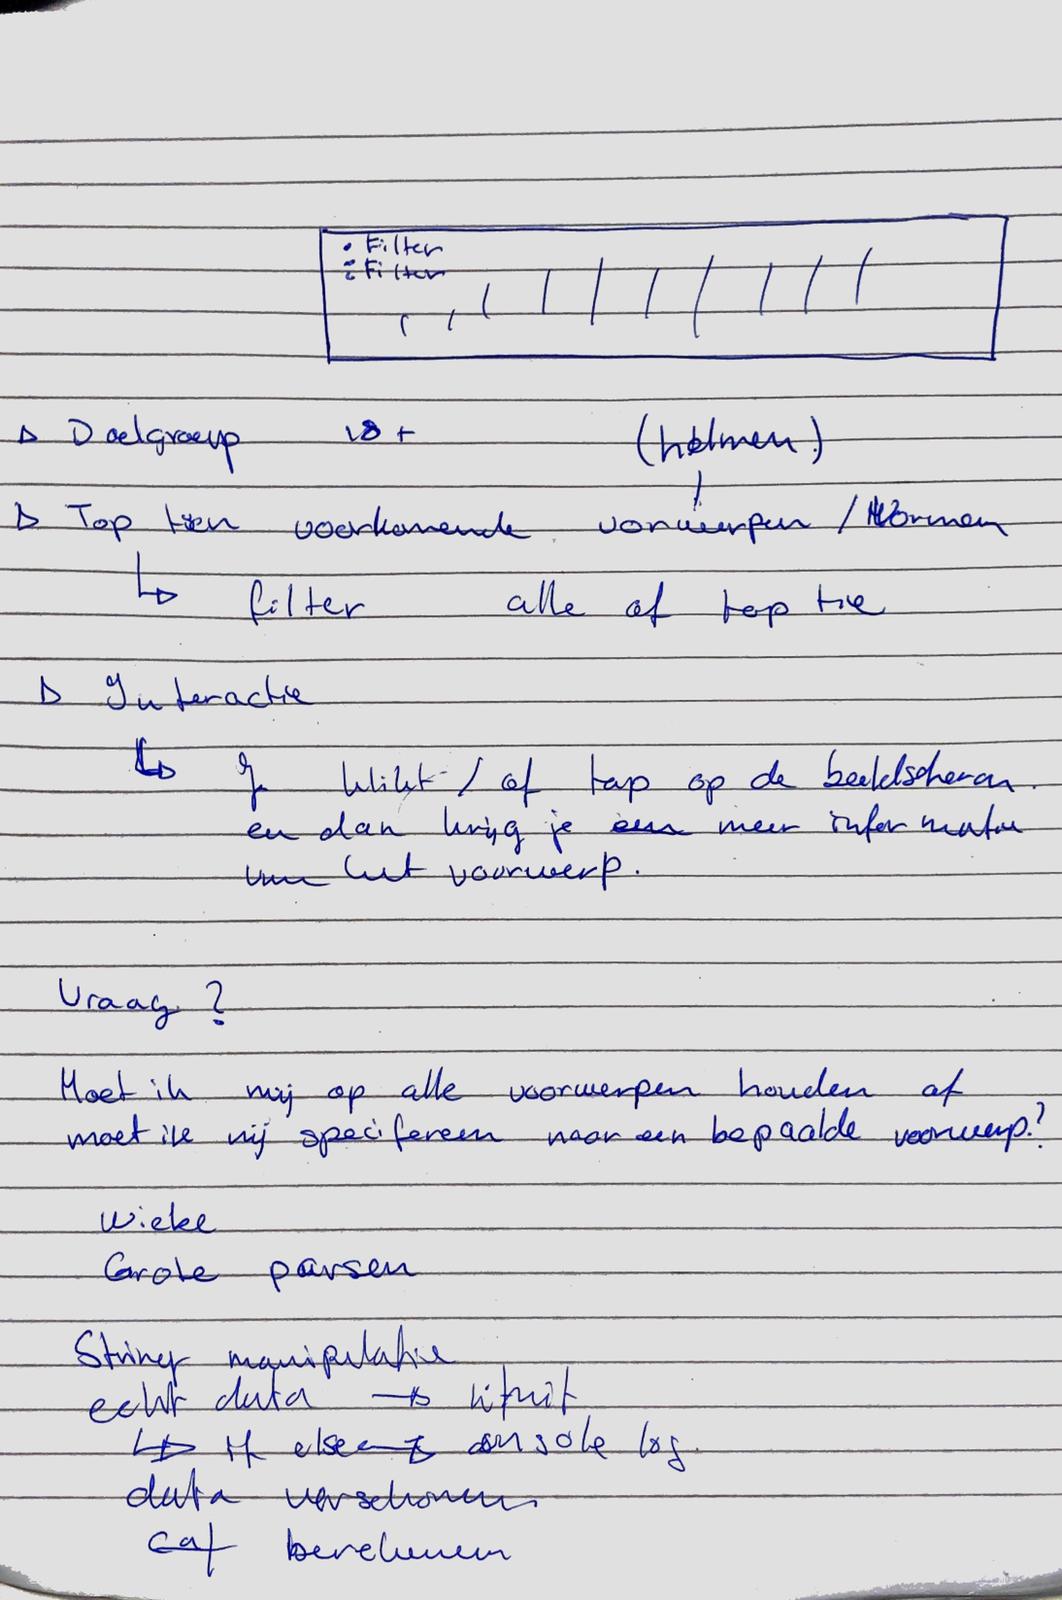 • Filter
• Filter
Doelgroep 18+ (helmen)
Top tien voorkomende vorwerpen /
filter alle of top tie
Interactie
klikt / of tap op de beeldscherm
en dan krijg je een meer informatie
van het voorwerp.
Vraag?
Moet ik mij op alle voorwerpen houden of
moet ik mij specifereen naar een bepaalde voorwerp?
Wieke
Grote parsen
String manipulatie
echt data → limit
if else console log.
data verschonen
cat berekenen